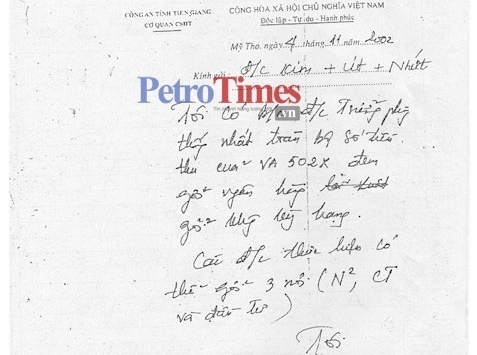 CÔNG AN TỈNH TIỀN GIANG
CƠ QUAN CSĐT
CỘNG HÒA XÃ HỘI CHỦ NGHĨA VIỆT NAM
Độc lập - Tự do - Hạnh phúc
Mỹ Tho, ngày 4 tháng 11 năm 2002
Kính gửi: Đ/c Kim + Út + Nhứt
PetroTimes
.vn
Tôi có đ/c Trưởng phòng
thống nhất toàn bộ số tiền
thu của VA 502X đem
gởi ngân hàng
gởi không kỳ hạn.
Các đ/c thực hiện có
thể gởi 3 nơi (N², CT
và đầu tư)
Tôi